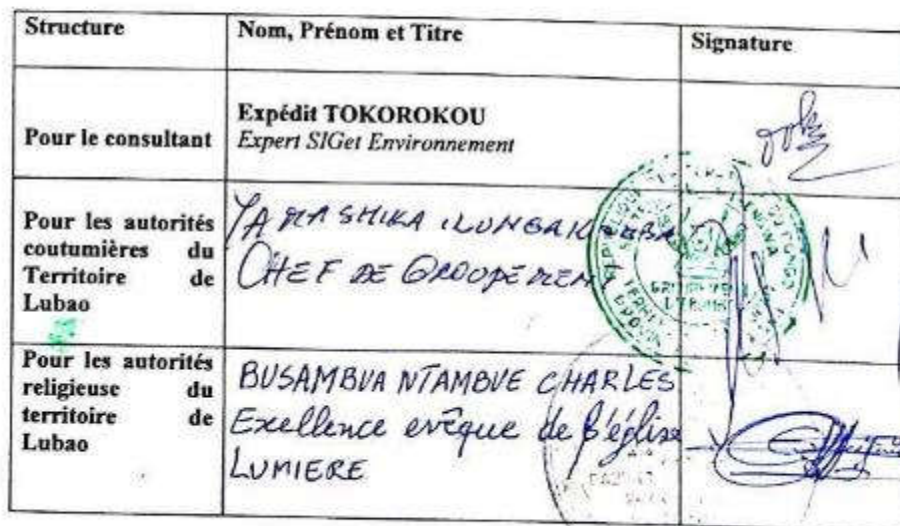 Structure
Nom, Prénom et Titre
Signature
Pour le consultant
Expédit TOKOROKOU
Expert SIGet Environnement
Pour les autorités
coutumières du
Territoire de
Lubao
CHEF DE
Pour les autorités
religieuse du
territoire de
Lubao
BUSAMBUA NTAMBUE CHARLES
Exellence evêque de l'église
LUMIERE